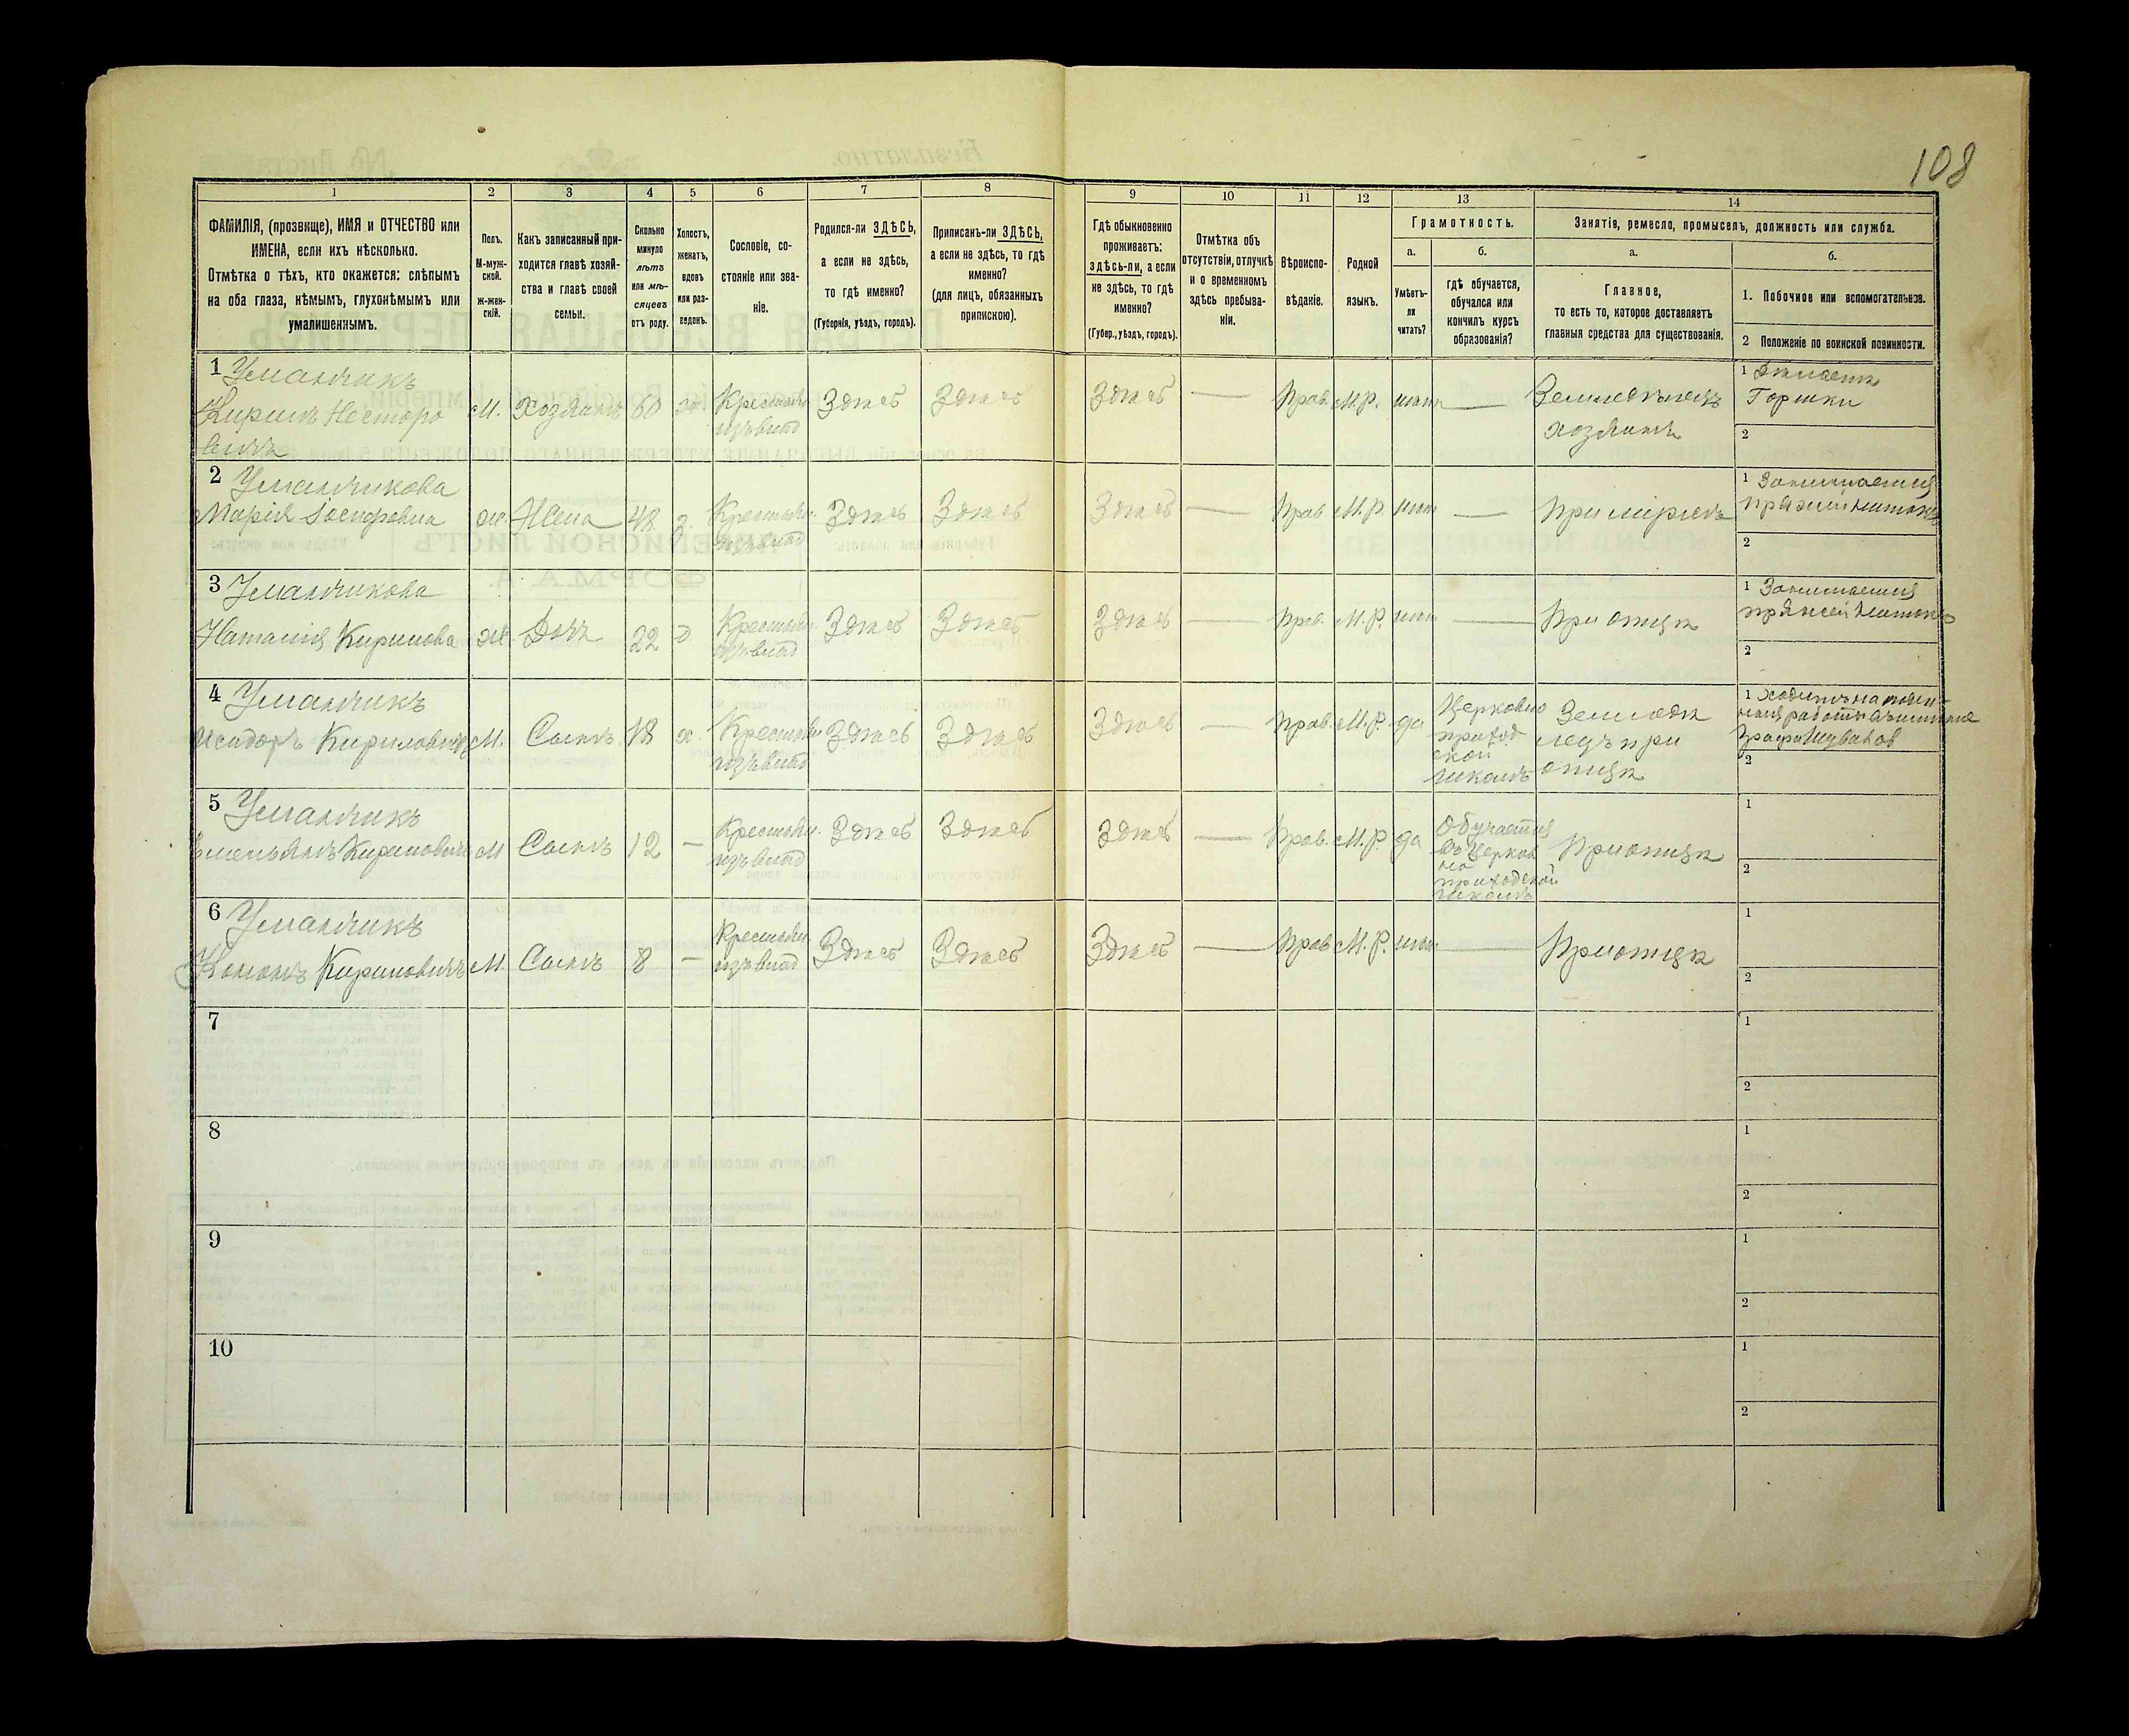 108
1
2
3
4
5
6
7
8
9
10
11
12
13
14
ФАМИЛІЯ, (прозвище), ИМЯ и ОТЧЕСТВО или
ИМЕНА, если ихъ нѣсколько.
Отмѣтка о тѣхъ, кто окажется: слѣпымъ
на оба глаза, нѣмымъ, глухонѣмымъ или
умалишеннымъ.
Полъ.
М-муж-
ской.
Ж-жен-
скій.
Какъ записанный при-
ходится главѣ хозяй-
ства и главѣ своей
семьи.
Сколько
минуло
лѣтъ
или мѣ-
сяцевъ
отъ роду.
Холостъ,
женатъ,
вдовъ
или раз-
веденъ.
Сословіе, со-
стояніе или зва-
ніе.
Родился-ли ЗДѢСЬ,
а если не здѣсь,
то гдѣ именно?
(Губернія, уѣздъ, городъ).
Приписанъ-ли ЗДѢСЬ,
а если не здѣсь, то гдѣ
именно?
(для лицъ, обязанныхъ
припискою).
Гдѣ обыкновенно
проживаетъ:
здѣсь-ли, а если
не здѣсь, то гдѣ
именно?
(Губер., уѣздъ, городъ).
Отмѣтка объ
отсутствіи, отлучкѣ
и о временномъ
здѣсь пребыва-
ніи.
Вѣроиспо-
вѣданіе.
Родной
языкъ.
Грамотность.
а.
Умѣетъ-
ли
читать?
б.
гдѣ обучается,
обучался или
кончилъ курсъ
образованія?
Занятія, ремесло, промыселъ, должность или служба.
а.
Главное,
то есть то, которое доставляетъ
главныя средства для существованія.
б.
1. Побочное или вспомогательное.
2 Положеніе по воинской повинности.
1 Уманчикъ
Кирилъ Несторо
вичъ
М. Хозяинъ 60 Крестьян. изъ влад Здѣсь Здѣсь Здѣсь — Прав. М.Р. нѣтъ — Земледѣлецъ
хозяинъ
1 Дѣлаетъ
Горшки
2
2 Уманчикова
Марія Іосифовна ж. Жена 48 з. Крестьян. изъ влад Здѣсь Здѣсь Здѣсь — Прав М.Р. нѣтъ — При мужѣ
1 Занимается
пряжей нитокъ
2
3 Уманчикова
Наталія Кирилова ж. Дочь 22 Крестьян. изъ влад Здѣсь Здѣсь Здѣсь — Прав. М.Р. нѣтъ — При отцѣ
1 Занимается
пряжей нитокъ
2
4 Уманчикъ
Исидоръ Кириловичъ М. Сынъ 18 х. Крестьян изъ влад Здѣсь Здѣсь Здѣсь — Прав. М.Р. да
Церковно
приход
ской
школѣ
Земледѣ
лецъ при
отцѣ
1 Ходитъ на
графа Шувалов
2
5 Уманчикъ
Емельянъ Кириловичъ М Сынъ 12 — Крестьян. изъ влад Здѣсь Здѣсь Здѣсь — Прав. М.Р. да
Обучается
въ Церков
но
приходской
школѣ
При отцѣ
1
2
6 Уманчикъ
Кононъ Кириловичъ М. Сынъ 8 — Крестьян. изъ влад Здѣсь Здѣсь Здѣсь — Прав М.Р. нѣтъ — При отцѣ
1
2
7
1
2
8
1
2
9
1
2
10
1
2